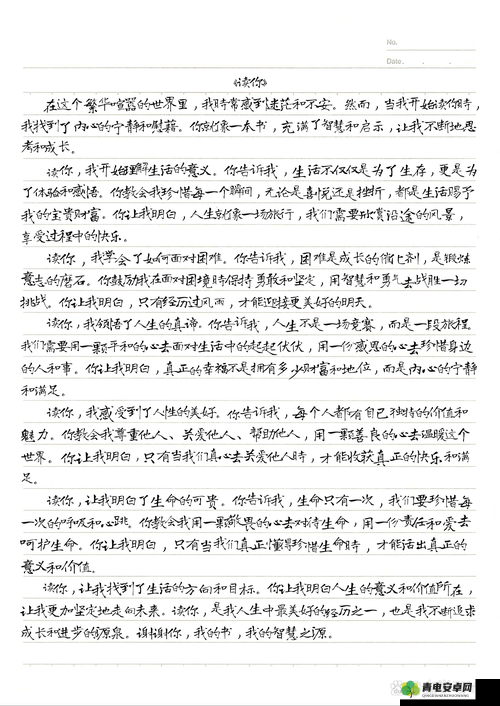 No.
Date. . .
《读你》
在这个繁华喧嚣的世界里，我时常感到迷茫和不安。然而，当我开始读你时，
我找到了内心的宁静和慰藉。你就像一本书，充满了智慧和启示，让我不断地思
考和成长。
读你，我开始理解生活的意义。你告诉我，生活不仅仅是为了生存，更是为
了体验和感悟。你教会我珍惜每一个瞬间，无论是喜悦还是挫折，都是生活赐予
我的宝贵财富。你让我明白，人生就像一场旅行，我们需要欣赏沿途的风景，
享受过程中的快乐。
读你，我学会了如何面对困难。你告诉我，困难是成长的催化剂，是锻炼
意志的磨石。你鼓励我在面对困境时保持勇敢和坚定，用智慧和勇气去战胜一切
挑战。你让我明白，只有经历过风雨，才能迎接更美好的明天。
读你，我领悟了人生的真谛。你告诉我，人生不是一场竞赛，而是一段旅程。
我们需要用一颗平和的心去面对生活中的起起伏伏，用一份感恩的心去珍惜身边
的人和事。你让我明白，真正的幸福不是拥有多少财富和地位，而是内心的宁静
和满足。
读你，我感受到了人性的美好。你告诉我，每个人都有自己独特的价值和
魅力。你教会我尊重他人、关爱他人、帮助他人，用一颗善良的心去温暖这个
世界。你让我明白，只有当我们真心去关爱他人时，才能收获真正的快乐和满
足。
读你，让我明白了生命的可贵。你告诉我，生命只有一次，我们要珍惜每
一次的呼吸和心跳。你教会我用一颗敬畏的心去对待生命，用一份责任和爱去
呵护生命。你让我明白，只有当我们真正懂得珍惜生命时，才能活出真正的
意义和价值。
读你，让我找到了生活的方向和目标。你让我明白人生的意义和价值所在，
让我更加坚定地走向未来。读你，是我人生中最美好的经历之一，也是我不断追求
成长和进步的源泉。谢谢你，我的书，我的智慧之源。
青电安卓网